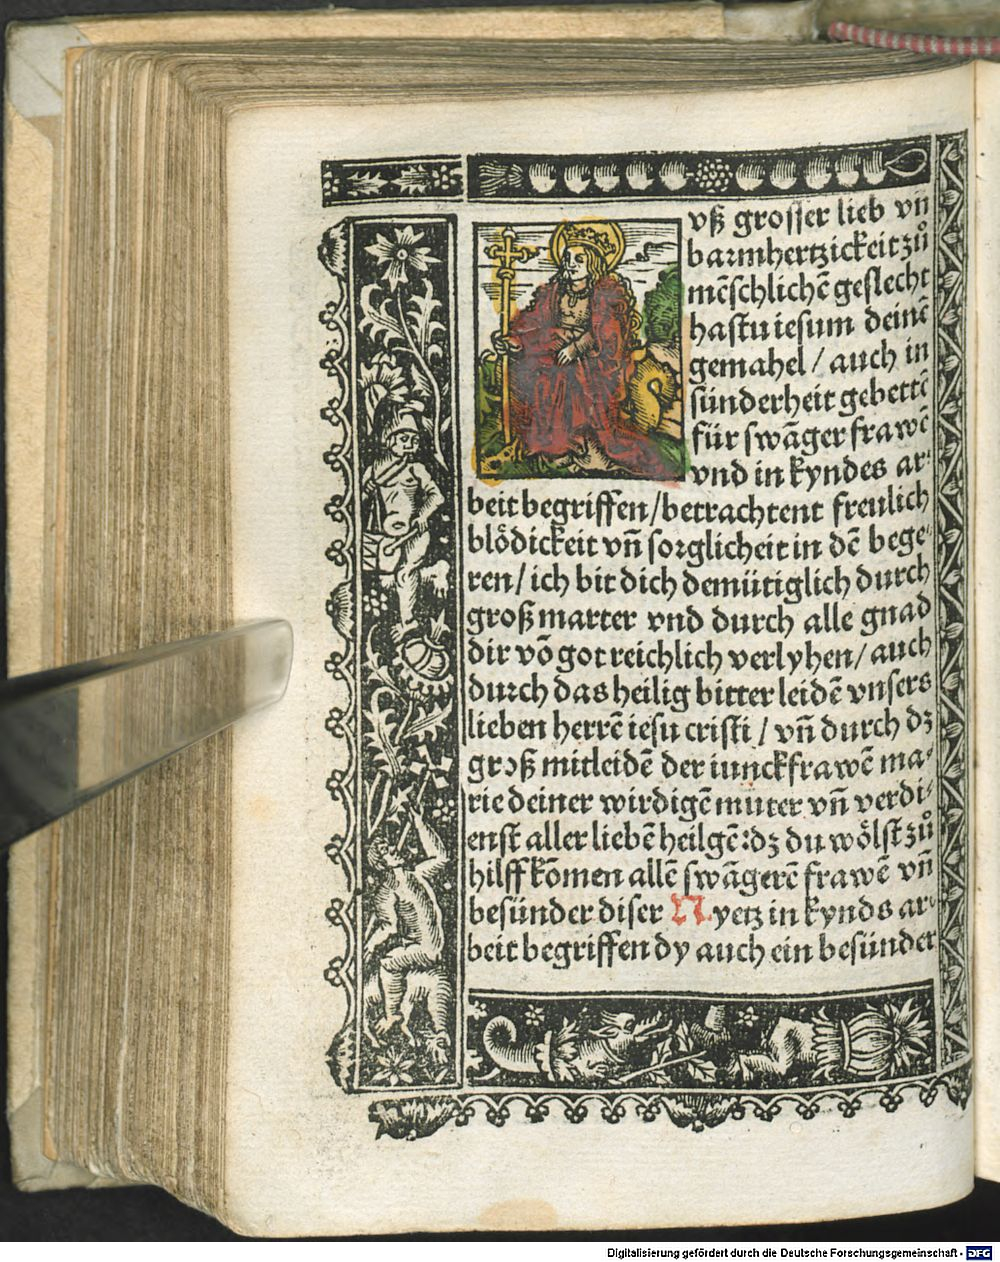 vß grosser lieb vn̄
barmhertzickeit zů
mēschlichē geslecht
hastu iesum deinē
gemahel / auch in
sünderheit gebettē
für swāger frawē
vnd in kyndes ar⸗
beit begriffen/betrachtent freulich
blödickeit vn̄ sorglicheit in dē bege⸗
ren/ich bit dich demütiglich durch
groß marter vnd durch alle gnad
dir vō got reichlich verlyhen/auch
durch das heilig bitter leidē vnsers
lieben herrē iesu cristi / vn̄ durch dʒ
groß mitleidē der iunckfrawē ma⸗
rie deiner wirdigē muter vn̄ verdi⸗
enst aller liebē heilgē:dʒ du wölst zů
hilff kōmen allē swāgerē frawē vn̄
besünder diser N. yetz in kynds ar⸗
beit begriffen dy auch ein besünder
Digitalisierung gefördert durch die Deutsche Forschungsgemeinschaft - DFG